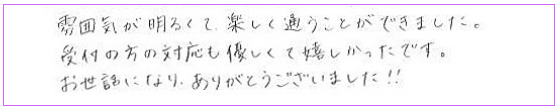 雰囲気が明るくて、楽しく通うことができました。
受付の方の対応も優しくて嬉しかったです。
お世話になり、ありがとうございました!!